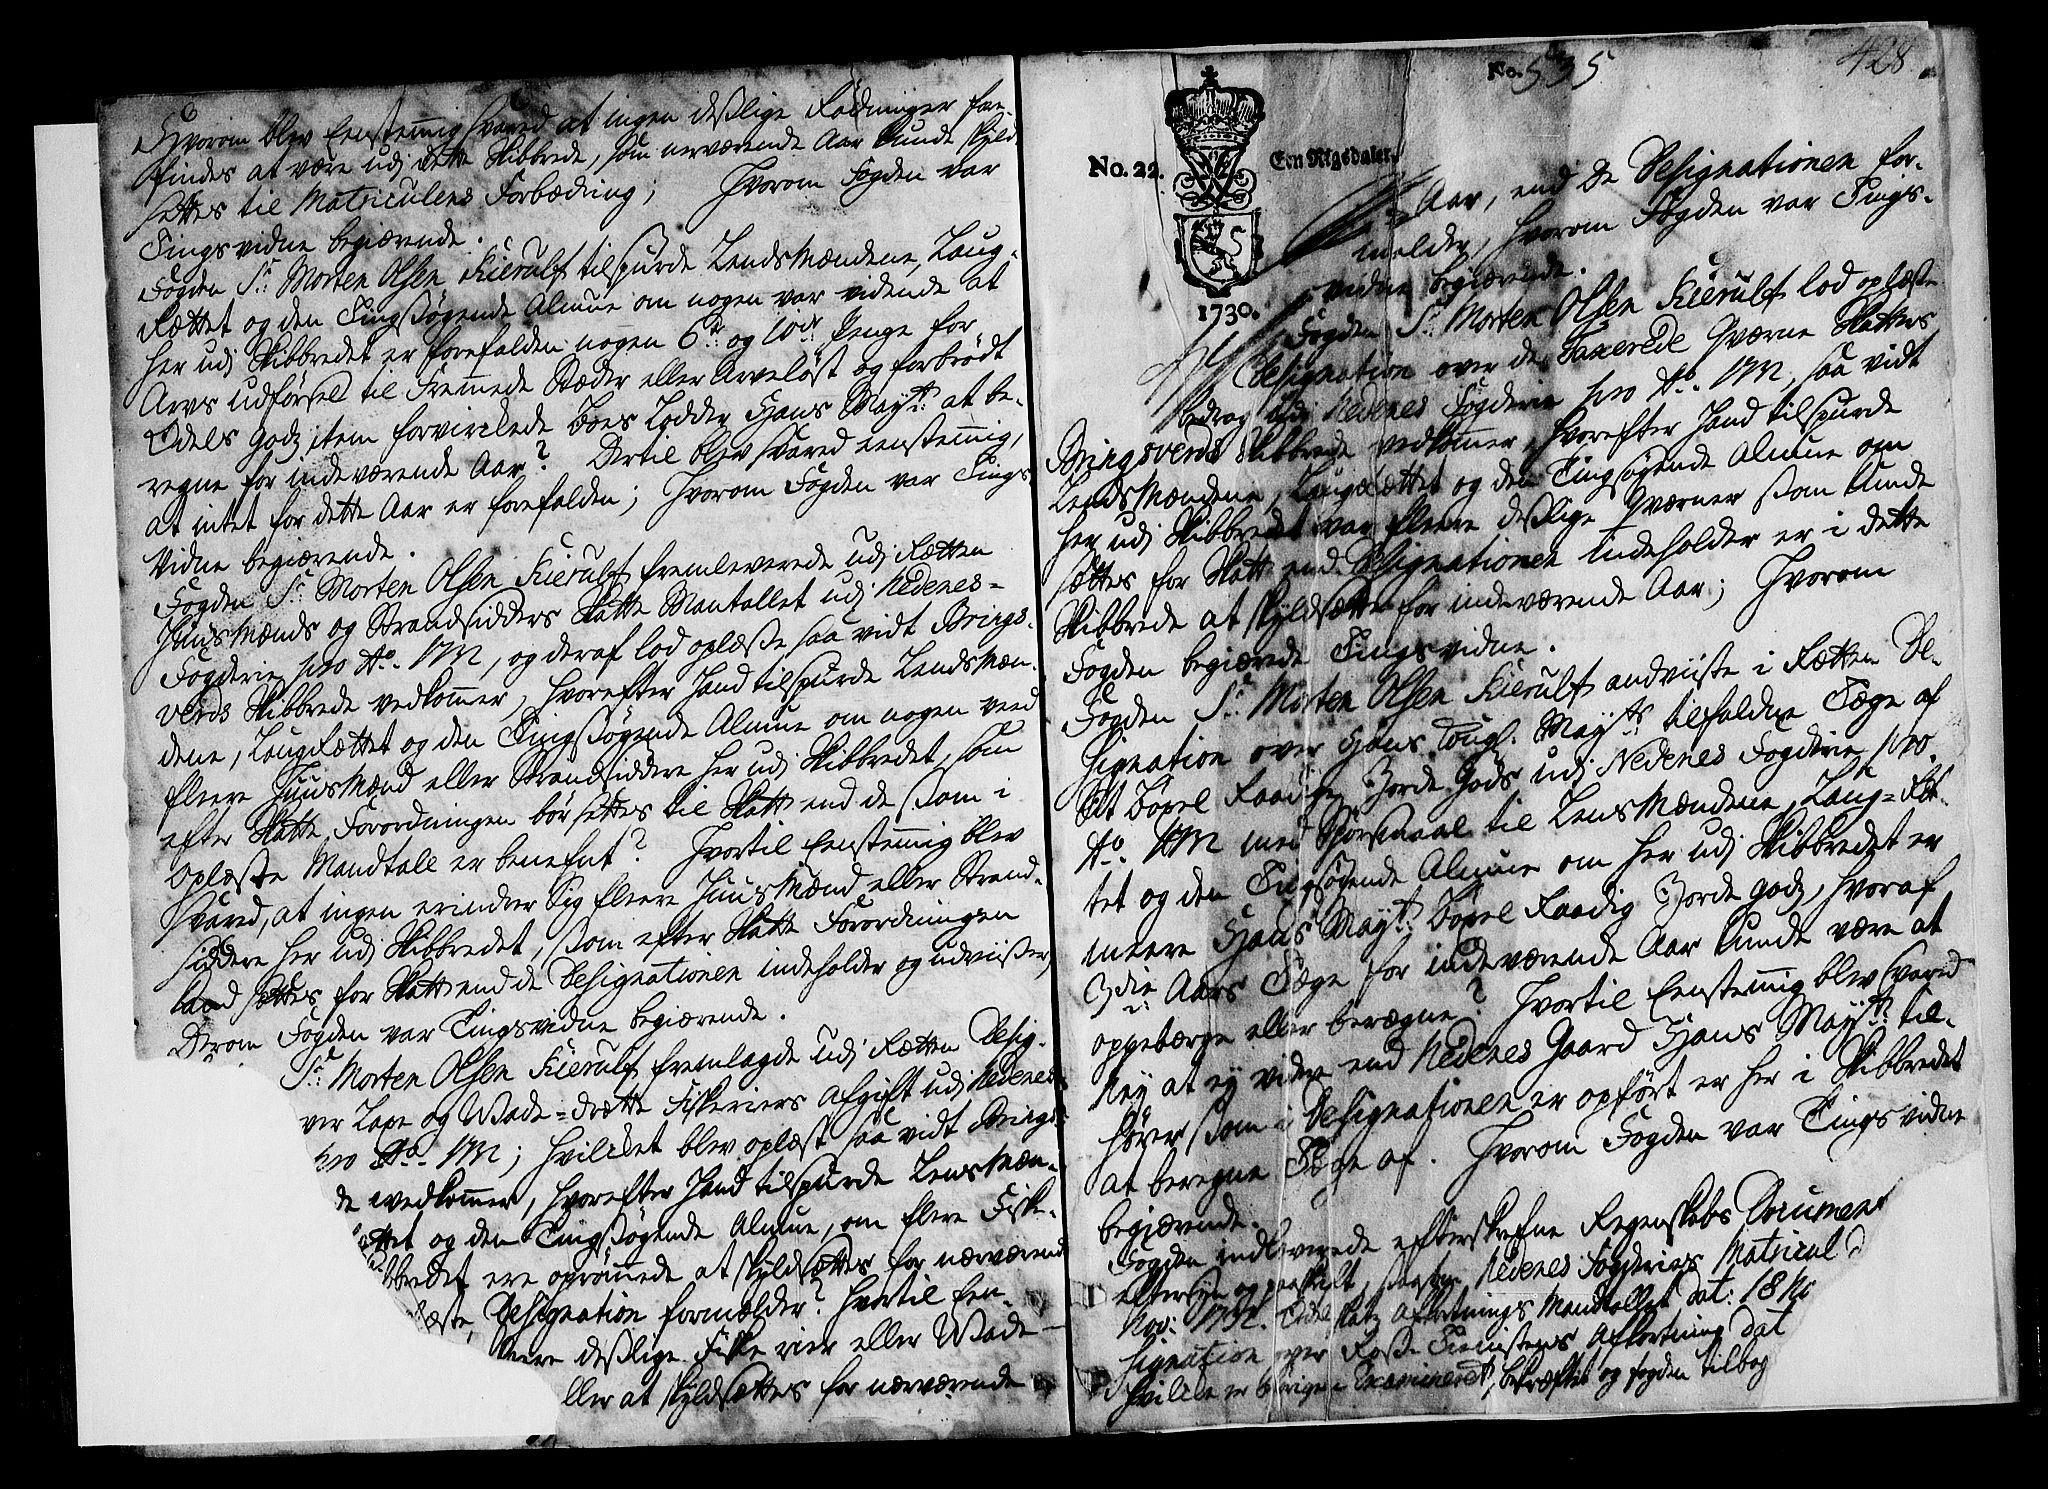 Hvorom blev Eenstemig svared at ingen deslige Rødninger fore-
findes at være udj dette Skibbrede, som nerværende Aar kunde skyld
settes til Matriculens Forbædring; Hvorom Fogden var
Tingsvidne begiærende.
Fogden Sr. Morten Olsen Kierulf tilspurde LendsMændene, Laug-
Rættet og den Tingssøgende Almue om nogen var vidende at
her udj Skibbredet er forefalden nogen 6te og 10de Penge for
Arvs udførsel til Fremmede Stæder eller Arveløst og forbrødt
Odels Godz item forvirckede Boes Lodder Hans Maytt at be-
regne for indeværende Aar? Dertil blev svared eenstemig,
at intet for dette Aar er forefalden; Hvorom Fogden var Tings
Vidne begiærende.
Fogden Sr. Morten Olsen Kierulf fremleverede udj Rætten
Huusmænds og Strandsidders Skatte Mantallet udj Nedenes-
Fogderie pro Ao. 1732, og deraf lod oplæsse saa vidt Brings-
verds Skibbrede vedkommer, hvorefter Hand tilspurde Lendsmæn-
dene, LaugRættet og den Tingssøgende Almue om nogen veed
fleere Huusmænd eller Strandsiddere her udj Skibbredet, som
efter Skatte Forordningen bør settes til Skatt end de som i
Oplæsste Mandtall er benefnt? Hvortil Eenstemig blev
svared, at ingen erindrer sig fleere Huusmænd eller Strand-
siddere her udj Skibbredet, som efter Skatte Forordningen
kand settes for Skatt end de Designationen indeholder og udviisser,
Derom Fogden var Tingsvidne begiærende.
Sr. Morten Olsen Kierulf fremlagde udj Rætten Desig-
ver Laxe og Wade-drætte Fiskeriers Afgift udj Nedenes
pro Ao. 1732; hvilcket blev oplæst saa vidt Brings-
de vedkommer, hvorefter Hand tilspurde Lensmæn-
ættet og den Tingssøgende Almue, om flere Fiske-
ibbredet ere oprømede at skyldsættes for nærværende
læste, Designation formælder? Hvortil Een-
leere deslige Fiskerier eller Wade-
ller at skyldsættes for nærværende
428
No. 535
No. 22. Een Rigsdaler.
1730.
Aar, end de Designationen for-
melder, hvorom Fogden var Tings-
vidne begiærende.
Fogden Sr. Morten Olsen Kierulf lod oplæste
Designation over de Taxerede Qværne Skatters
bedrag udj Nedenes Fogderie pro Ao. 1732, saa vidt
Bringsverds Skibbrede vedkommer, hvorefter Hand tilspurde
Lendsmændene, LaugRættet og den Tingsøgende Almue om
her udj Skibbredet var fleere deslige Qværner som kunde
sættes for Skatt end Designationen indeholder er i dette
Skibbrede at skyldsætte for indeværende Aar; Hvorom
Fogden begiærede Tingsvidne.
Fogden Sr. Morten Olsen Kierulf andviiste i Rætten De-
signation over Hans Kongl. Maytts tilfaldne Tæge af
det Bøxel Raadige Jorde Gods udj Nedenes Fogderie pro
Ao. 1732 med Spørsmaal til Lensmændene, Laug-Ræt-
tet og den Tingsøgende Almue om her udj Skibbredet er
meere Hans Maytts Bøxel Raadig Jorde godz, hvoraf
3die Aars Tæge for indeværende Aar kunde være at
oppebærge eller berægne? Hvortil Eenstemig blev svared
Ney at ej videre end Nedenes Gaard Hans Maytt til-
hører som i Designationen er opført er her i Skibbredet
at beregne Tæge af. Hvorom Fogden var Tingsvidne
begiærende.
Fogden indleverede efterskrefne Regenskabs Documen
eftersyn og paaskrift, saasom Nedenes Fogderies Matricul
Nov: 1732. Odel Skatz Afkortnings Mandtallet dat: 18 No
signation over Rosse Tienistens Afkortning dat
hvilcke er behørige Examineret, bekræftet og Fogden tilbag